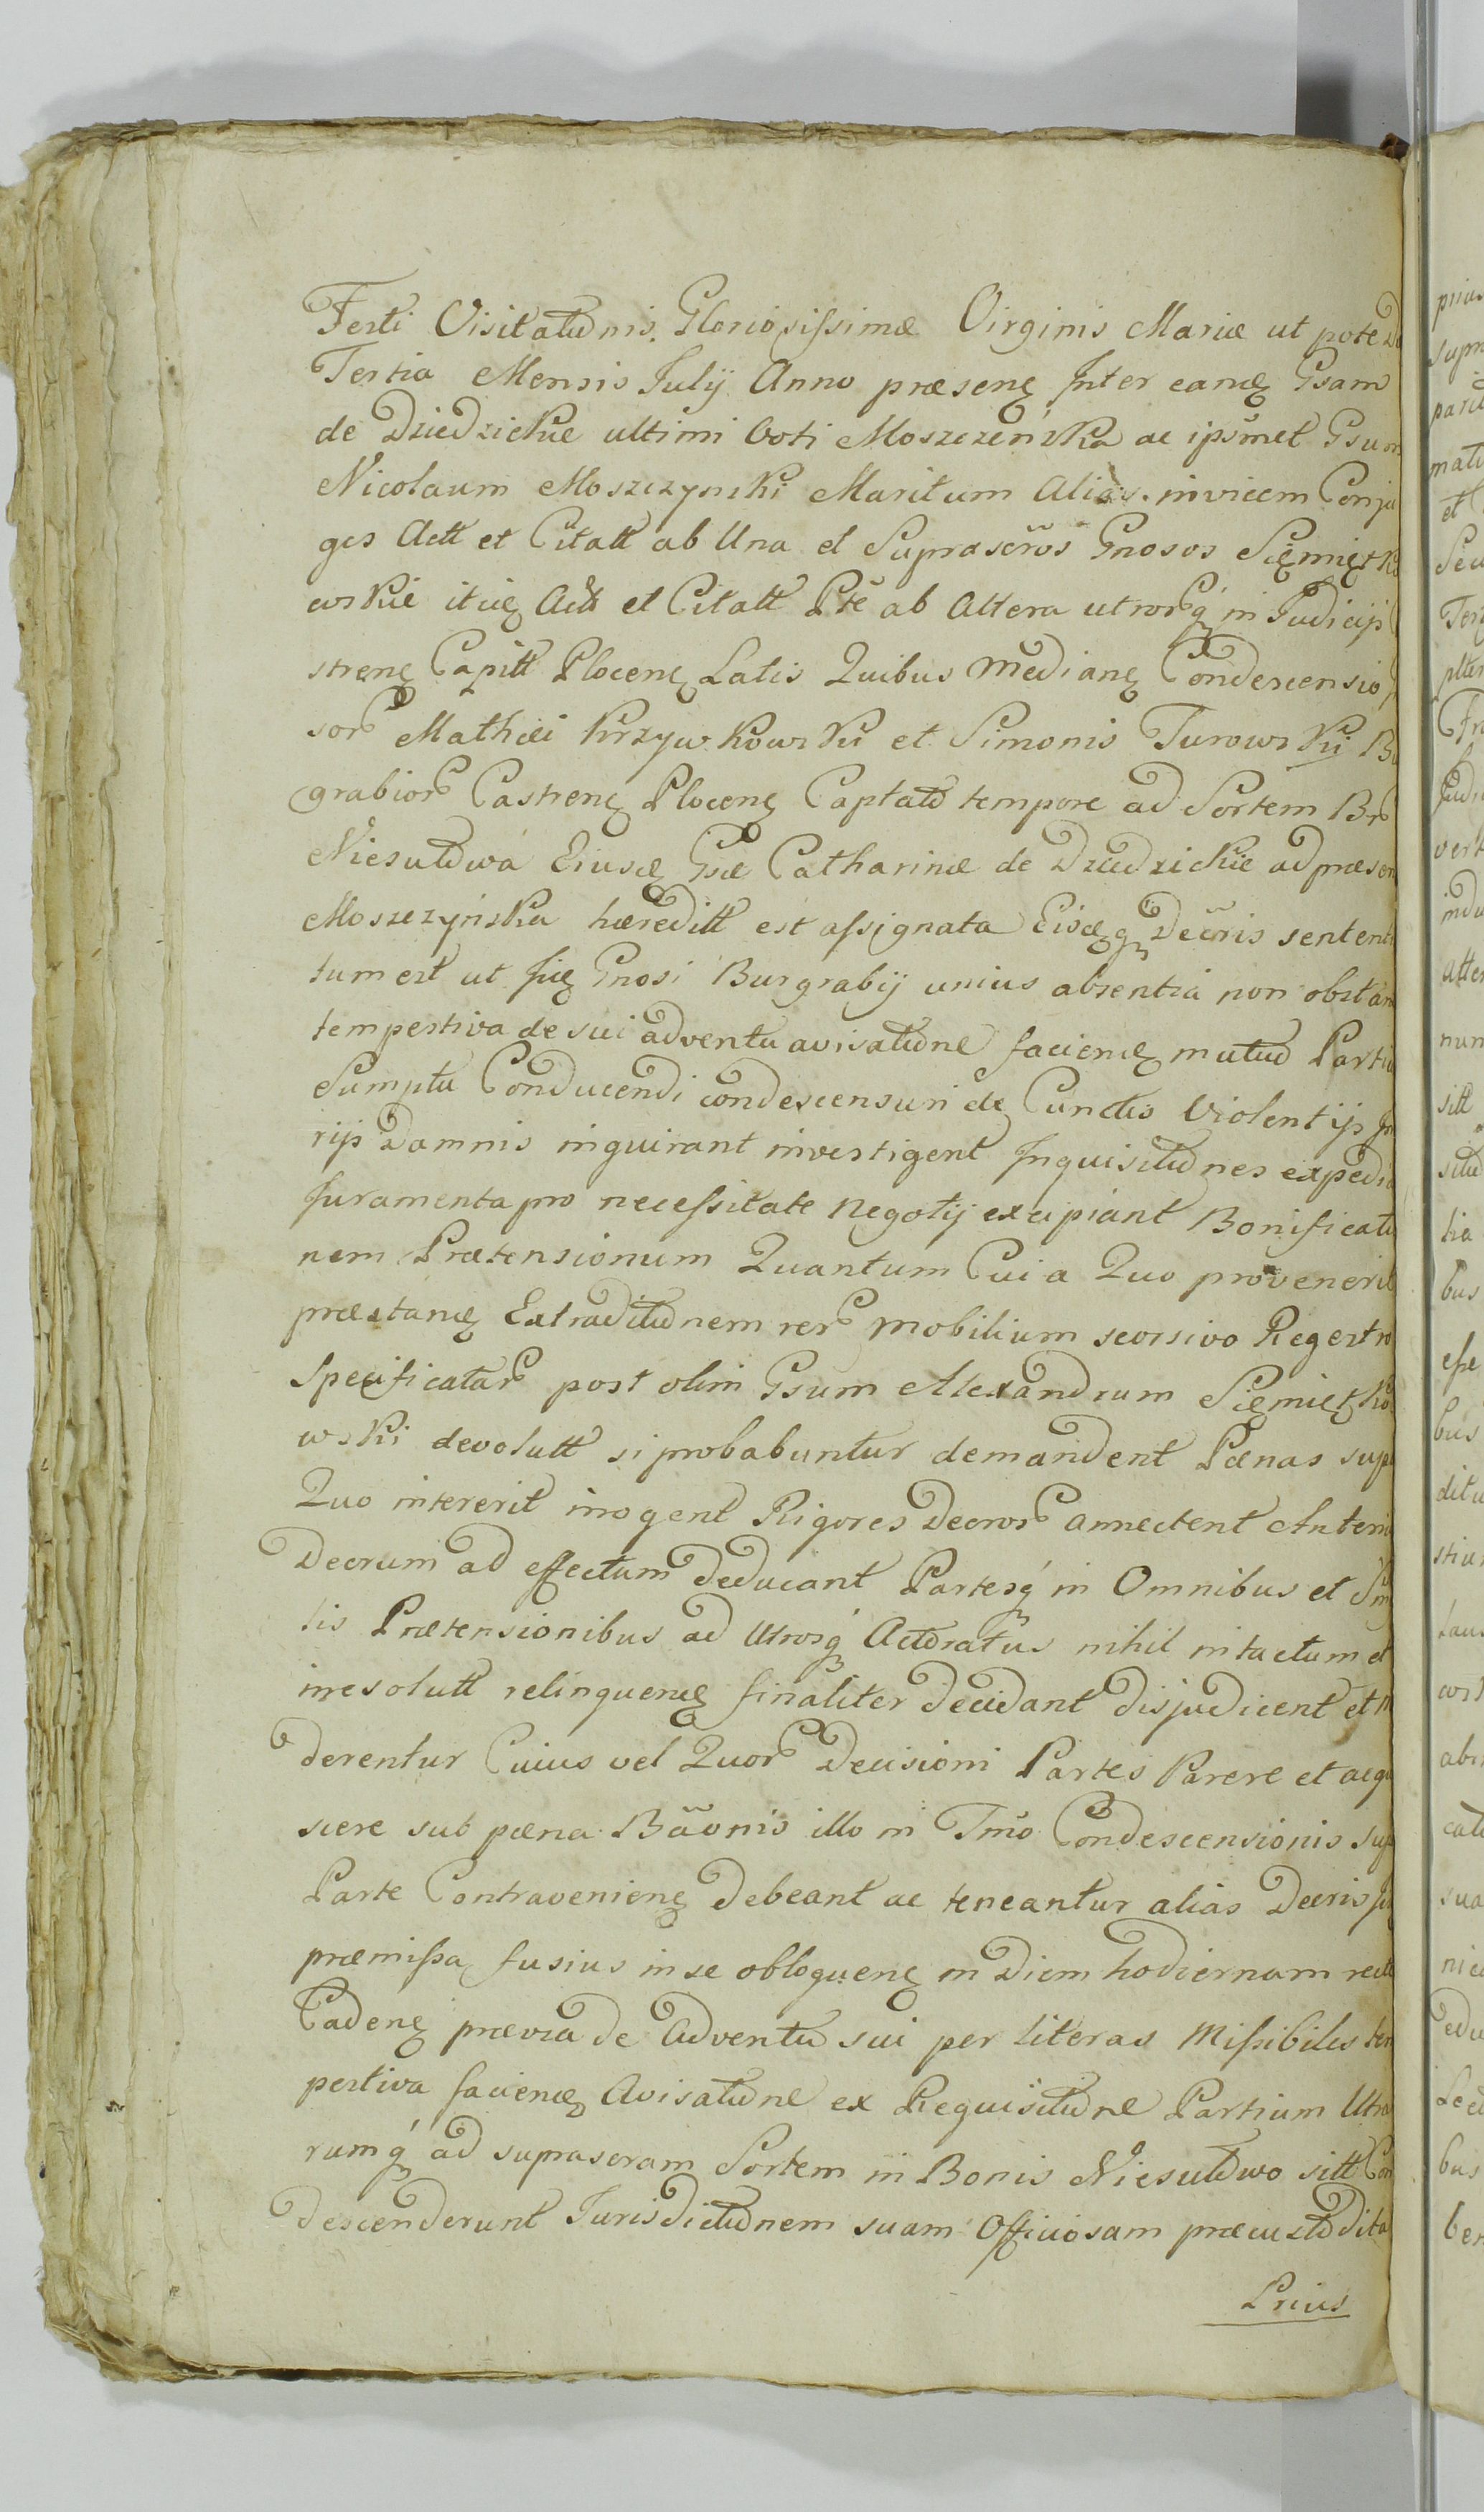 Festi Visitationis Gloriosissimæ Virginis Mariæ ut pote D
Tertia Mensis Julij Anno præsenꝫ Inter eandꝫ Gsam
de Dziedzickie ultimi Voti Moszczeńska ac ipsmet Gsum
Nicolaum Moszczynski Maritum Alias invicem Conju
ges Actt et Citatt ab Una et Suprascros Gnosos Siemiątko
wskie itidꝫ Actt et Citatt Pte ab Altera utrorꝗ in Judicijs
strenꝫ Capitt Plocenꝫ Latis Quibus Medianꝫ Condescensio
sor Mathiæi Krzywkowski et Simonis Turowski Bu
grabior Castrenꝫ Plocenꝫ Captato tempore ad Sortem Br
Niesułowa Eiusdꝫ Gsæ Catharinæ de Dziedzickie ad præsen
Moszczyńska hæreditt est assignata Eisdꝫꝗ Decris sentent
tum est ut ijdꝫ Gnosi Burgrabij unius absentia non obstan
tempestiva de sui adventu avisatione faciendꝫ mutuo Partiu
Sumptu Conducendi condescensuri de Cunctis Violentijs In
rijs Damnis inquirant investigent Inquisitiones expedia
Juramenta pro necessitate Negotij excipiant Bonificatio
nem Prætensionum Quantum Cui a Quo provenerit
præstandꝫ Extraditionem rer mobilium seorsivo Regestro
Specificatar post olim Gsum Alexandrum Siemiątko
wski devolutt si probabuntur demandent Pænas sup
Quo intererit irrogent Rigores Decror annectent Anterio
Decrum ad effectum deducant Partesꝗ in Omnibus et Sin
lis Prætensionibus ad Utrosꝗ Actoratus nihil intactum et
irresolutt relinquendꝫ finaliter decidant disjudicent et m
derentur Cuius vel Quor Decisioni Partes Parere et acqu
scere sub pæna Baonis illo in Tmo Condescensionis sup
Parte Contravenienꝫ debeant ac teneantur alias Decris
præmissa fusius in se obloquenꝫ in Diem hodiernam recte
Cadenꝫ prævia de Adventu sui per literas Missibiles tem
pestiva faciendꝫ Avisatione ex Requisitione Partium Utra
rumꝗ ad suprascram Sortem in Bonis Niesułowo sitt Con
descenderunt Jurisdictionem suam Officiosam præcustodita
Prius